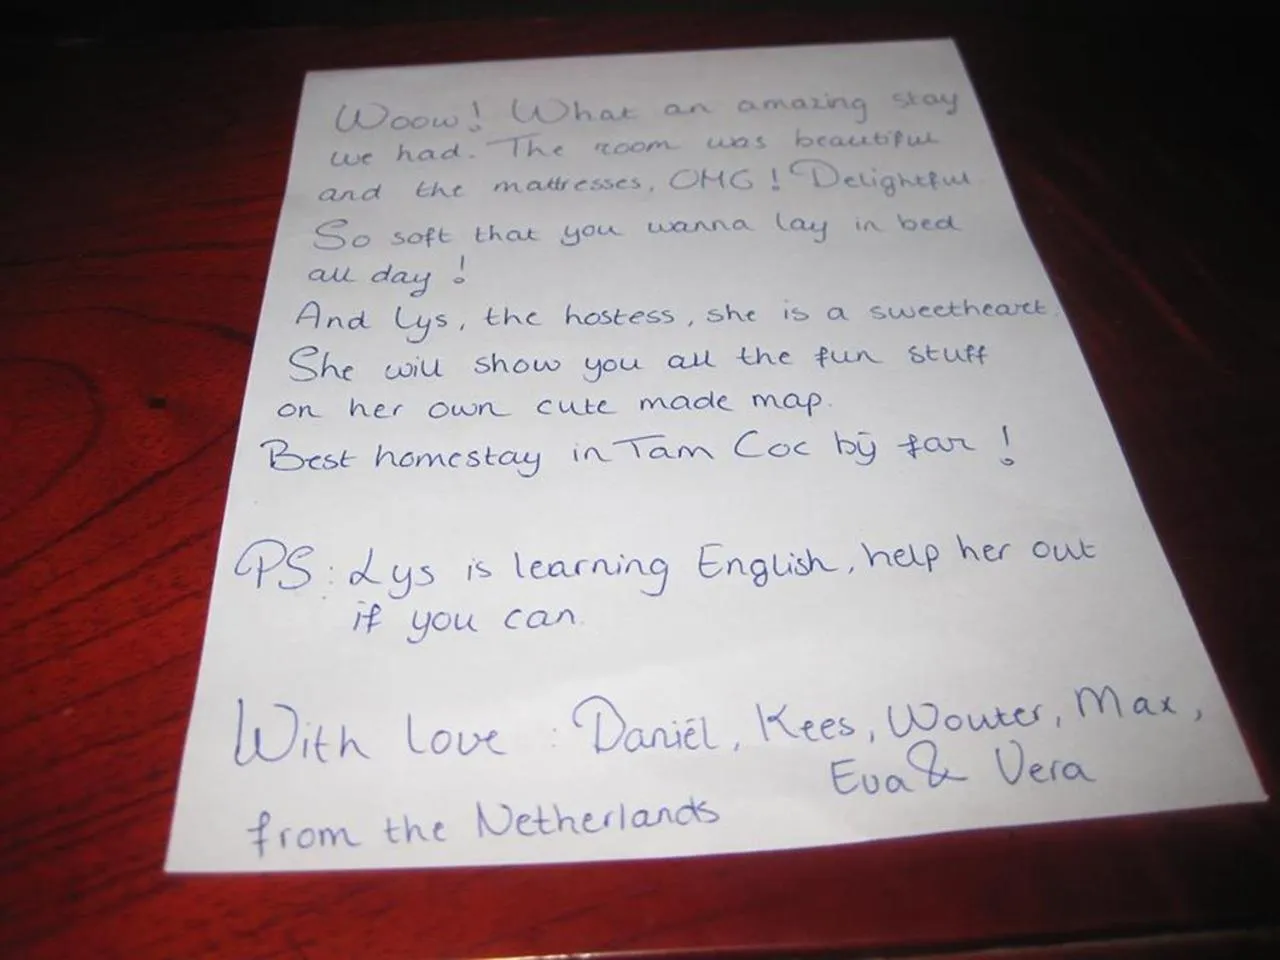 Woow! What an amazing stay
we had. The room was beautiful
and the mattresses, OMG! Delightful
So soft that you wanna lay in bed
all day!
And Lys, the hostess, she is a sweetheart.
She will show you all the fun stuff
on her own cute made map.
Best homestay in Tam Coc bÿ far!
PS: Lys is learning English, help her out
if you can.
With love: Daniël, Kees, Wouter, Max,
Eva & Vera
from the Netherlands